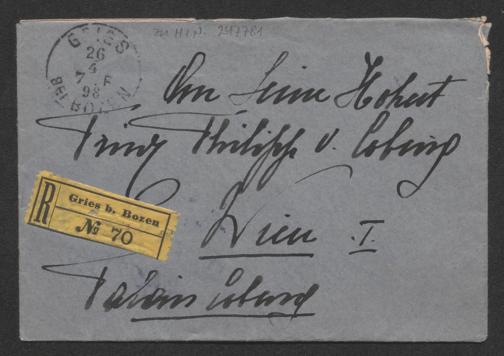 zu H.I.N. 247781
GRIES
26
4
7-F
98
BEI BOZEN
An Seine Hoheit
Prinz Philipp v. Coburg
R
Gries b. Bozen
№ 70
Wien I.
Palais Coburg